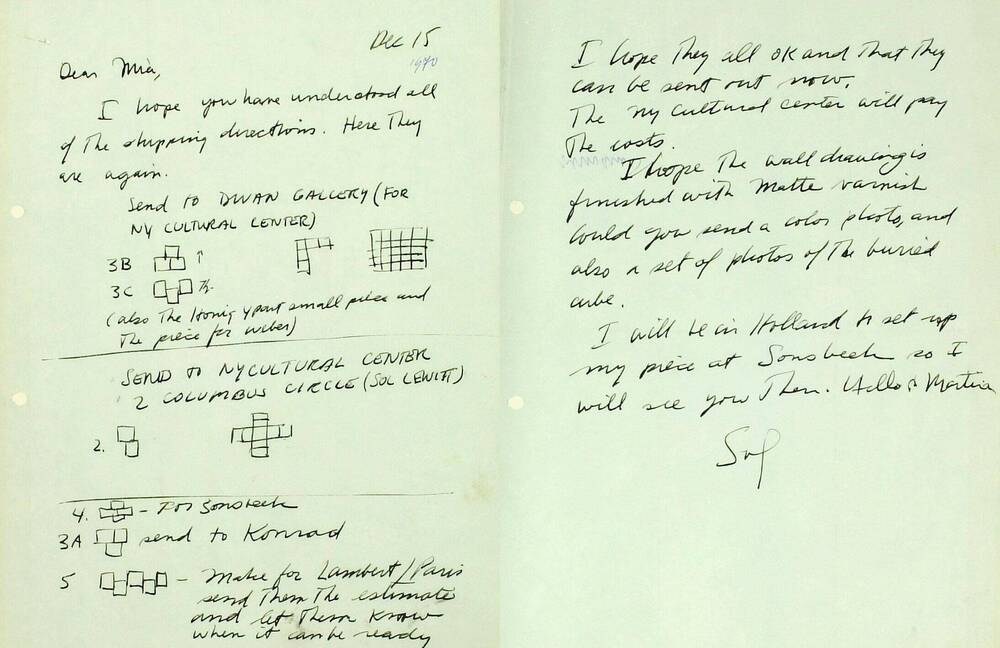 Dec 15
1970
Dear Mia,
I hope you have understood all
of the shipping directions. Here They
are again.
Send to DWAN GALLERY (FOR
NY CULTURAL CENTER)
3B
3C
(also The Honig Ypart small piece and
The piece for Weber)
SEND TO NY CULTURAL CENTER
2 COLUMBUS CIRCLE (SOL LEWITT)
2.
4. - For Sonsbeek
3A send to Konrad
5 - Make for Lambert/Paris
send Them The estimate
and let Them Know
when it can be ready
I hope They all ok and That They
can be sent out now.
The ny cultural center will pay
The costs.
I hope The wall drawing is
finished with Matte varnish
Could you send a color photo, and
also a set of photos of The buried
cube.
I will be in Holland to set up
my piece at Sonsbeek so I
will see you Then. Hello to Martin
Sol